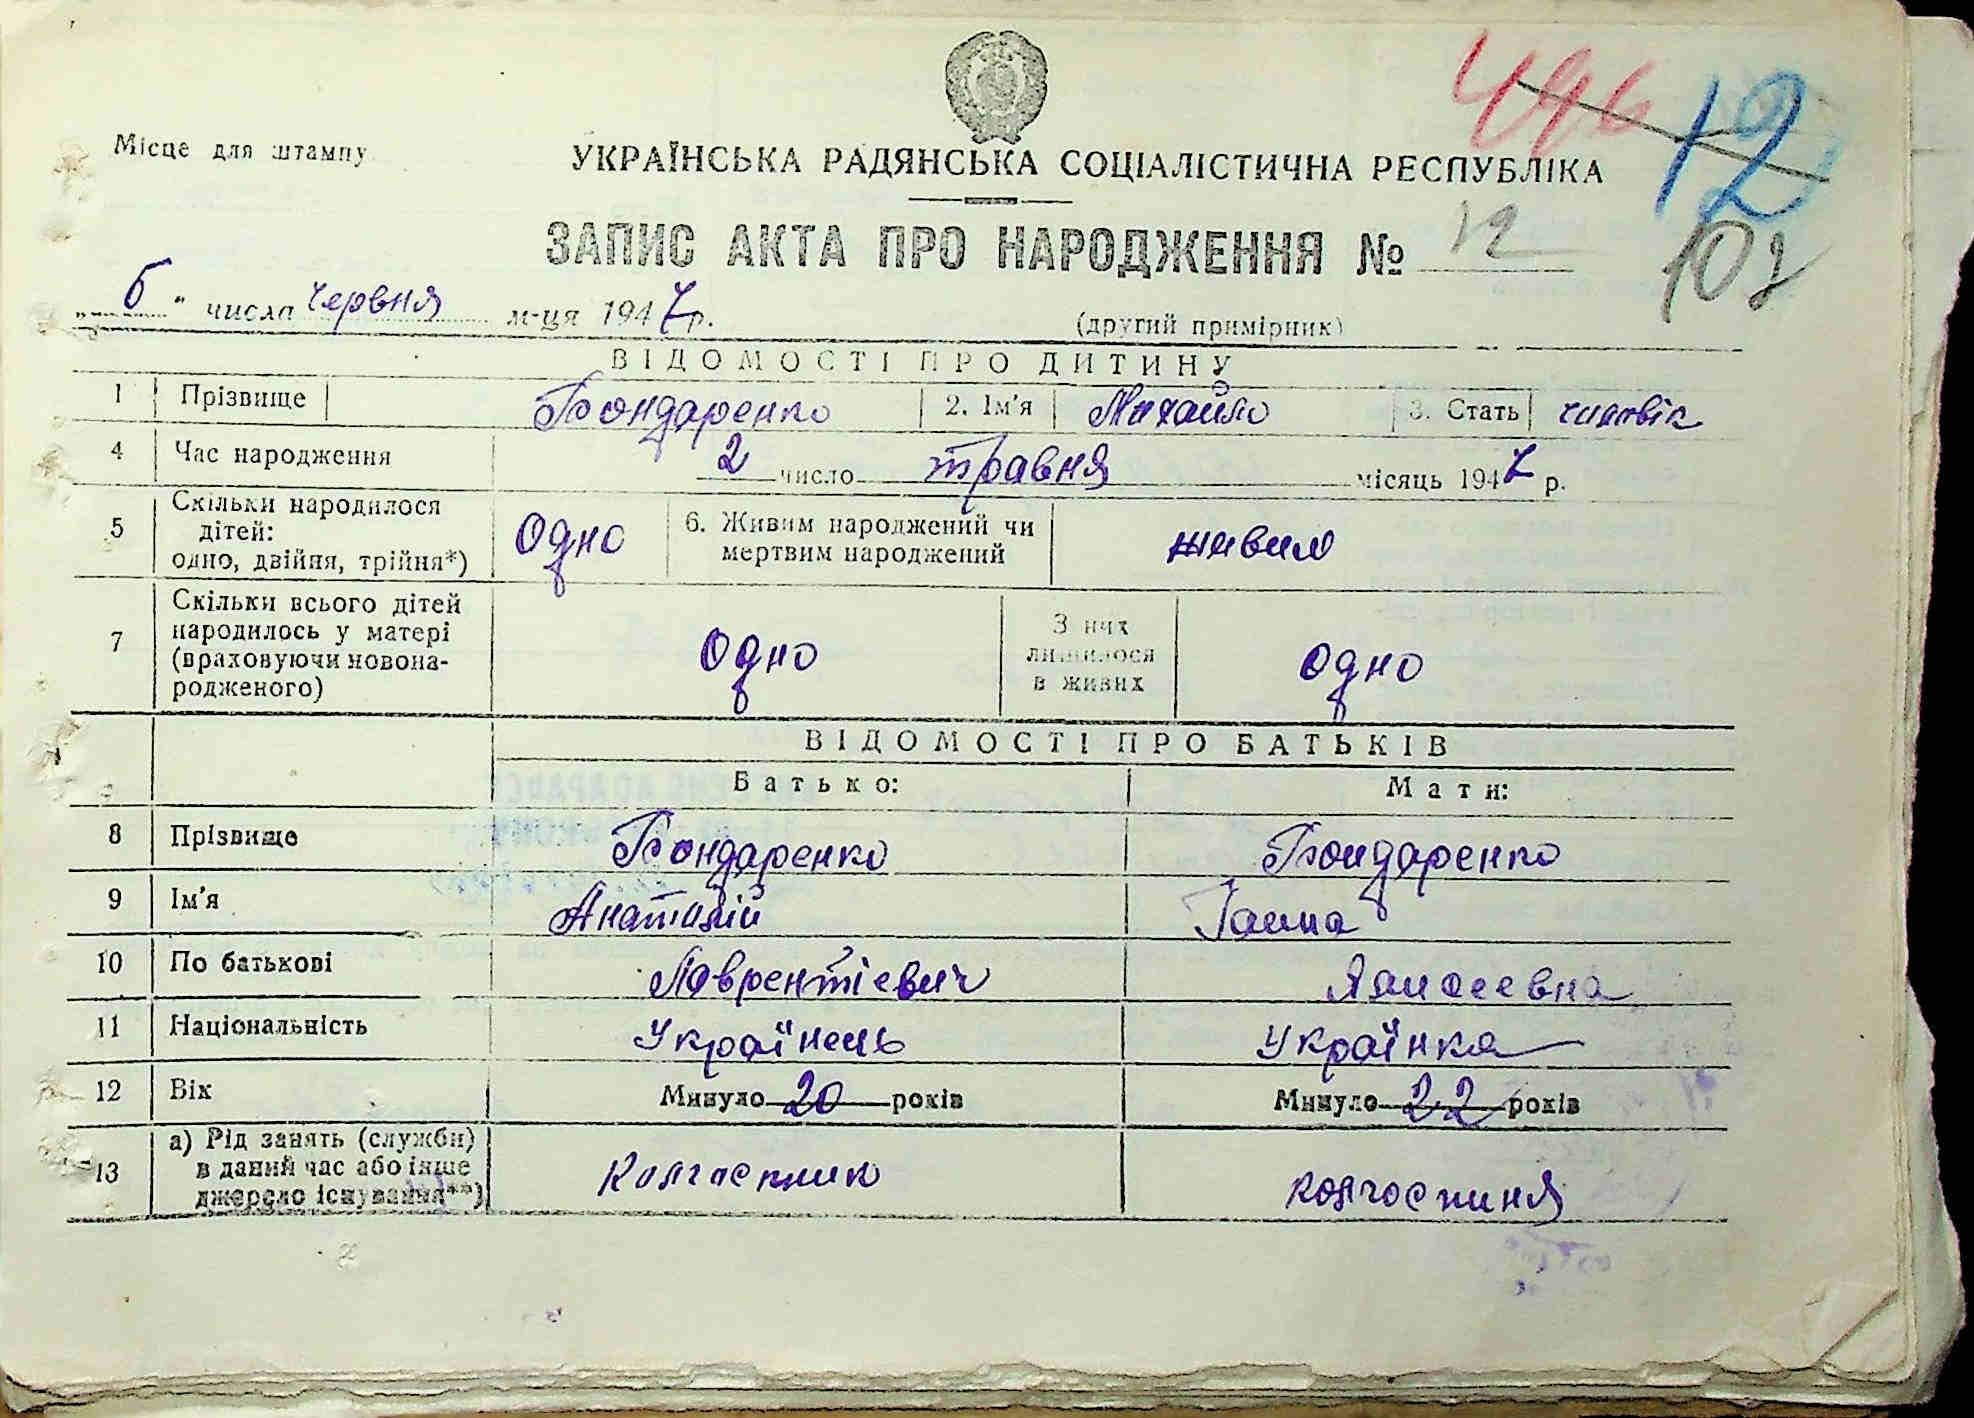 496
12
Місце для штампу
УКРАЇНСЬКА РАДЯНСЬКА СОЦІАЛІСТИЧНА РЕСПУБЛІКА
ЗАПИС АКТА ПРО НАРОДЖЕННЯ № 12
102
„ 6 " числа червня м-ця 1947 р.
(другий примірник)
ВІДОМОСТІ ПРО ДИТИНУ
1 Прізвище Бондаренко 2. Ім'я Михайло 3. Стать чиловік
4 Час народження 2 число травня місяць 1947 р.
5 Скільки народилося дітей: одно, двійня, трійня*) Одно 6. Живим народжений чи мертвим народжений живим
7 Скільки всього дітей народилось у матері (враховуючи новонародженого) Одно З них лишилося в живих одно
ВІДОМОСТІ ПРО БАТЬКІВ
Батько: Мати:
8 Прізвище Бондаренко Бондаренко
9 Ім'я Анатилій Ганна
10 По батькові Лаврентіевич
11 Національність Українець Українка
12 Вік Минуло 20 років Минуло 22 років
13 а) Рід занять (служби) в даний час або інше джерело існування**) Колгоспник колгоспиня